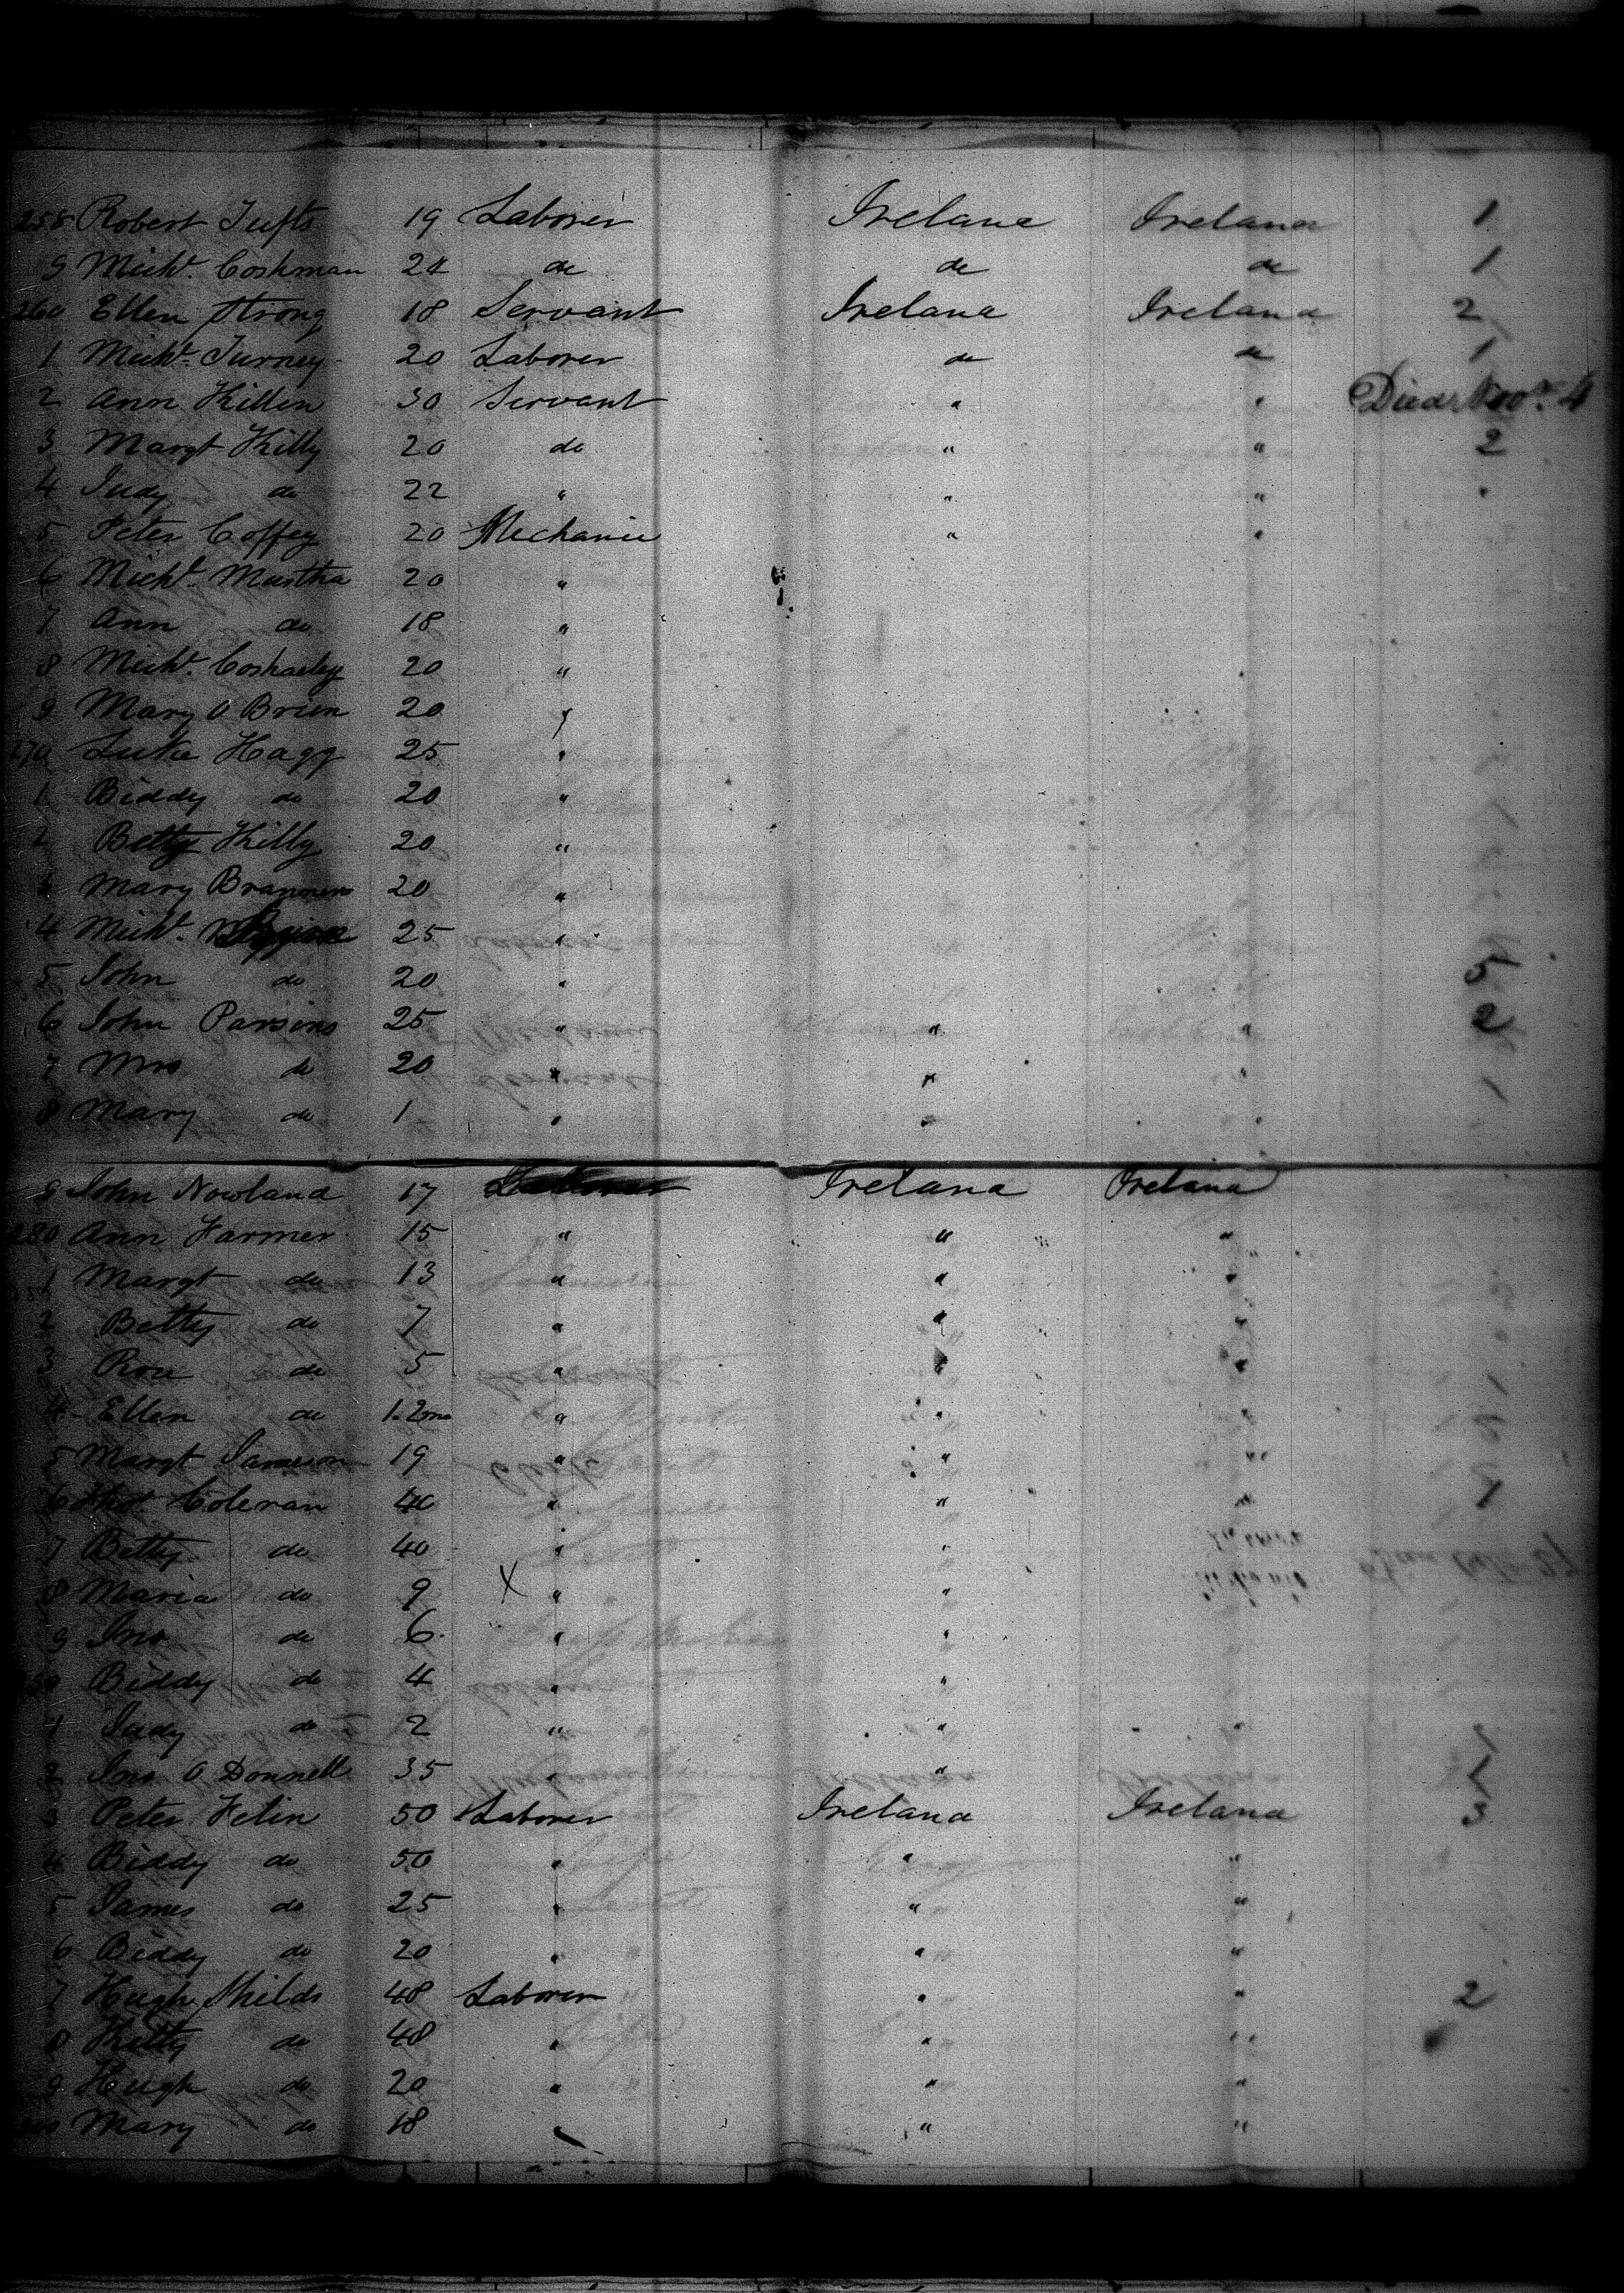 258 Robert Tufts 19 Laborer Ireland Ireland 1
9 Michl. Coshman 24 do do do 1
260 Ellen Strong 18 Servant Ireland Ireland 2
1 Michl. Turney 20 Laborer do do 1
2 Ann Killen 30 Servant " " Died Nov. 4
3 Margt Killy 20 do " " 2
4 Judy do 22 " " "
5 Peter Coffey 20 Mechanic " "
6 Michl. Murtha 20 "
7 Ann do 18 "
8 Michl. 20 "
9 Mary O Brien 20 "
270 Luke Hagg 25 "
1 Biddy do 20 "
2 Betty Killy 20 "
3 Mary Brannen 20 "
4 Michl. 25 "
5 John do 20 " 5
6 John Parsins 25 " " " 2
7 Mrs do 20 " " "
8 Mary do 1 " " "
9 John Nowland 17 Laborer Ireland Ireland
280 Ann Farmer 15 " " "
1 Margt do 13 " " "
2 Betty do 7 " " "
3 Rose do 5 " " "
4 Ellen do 1.2mo " " "
5 Margt Jameson 19 " " "
6 Coleran 40 " " "
7 Betty do 40 " " "
8 Maria do 9 X " "
9 Jno do 6 " "
290 Biddy do 4 " "
1 Judy do 2 " " "
2 Jno O Donnell 35 " " 1
3 Peter Felin 50 Laborer Ireland Ireland 3
4 Biddy do 50 " " "
5 James do 25 " " "
6 Biddy do 20 " " "
7 Hugh Shilds 48 Laborer " " 2
8 Kitty do 48 " " "
9 Hugh do 20 " " "
300 Mary do 18 " " "